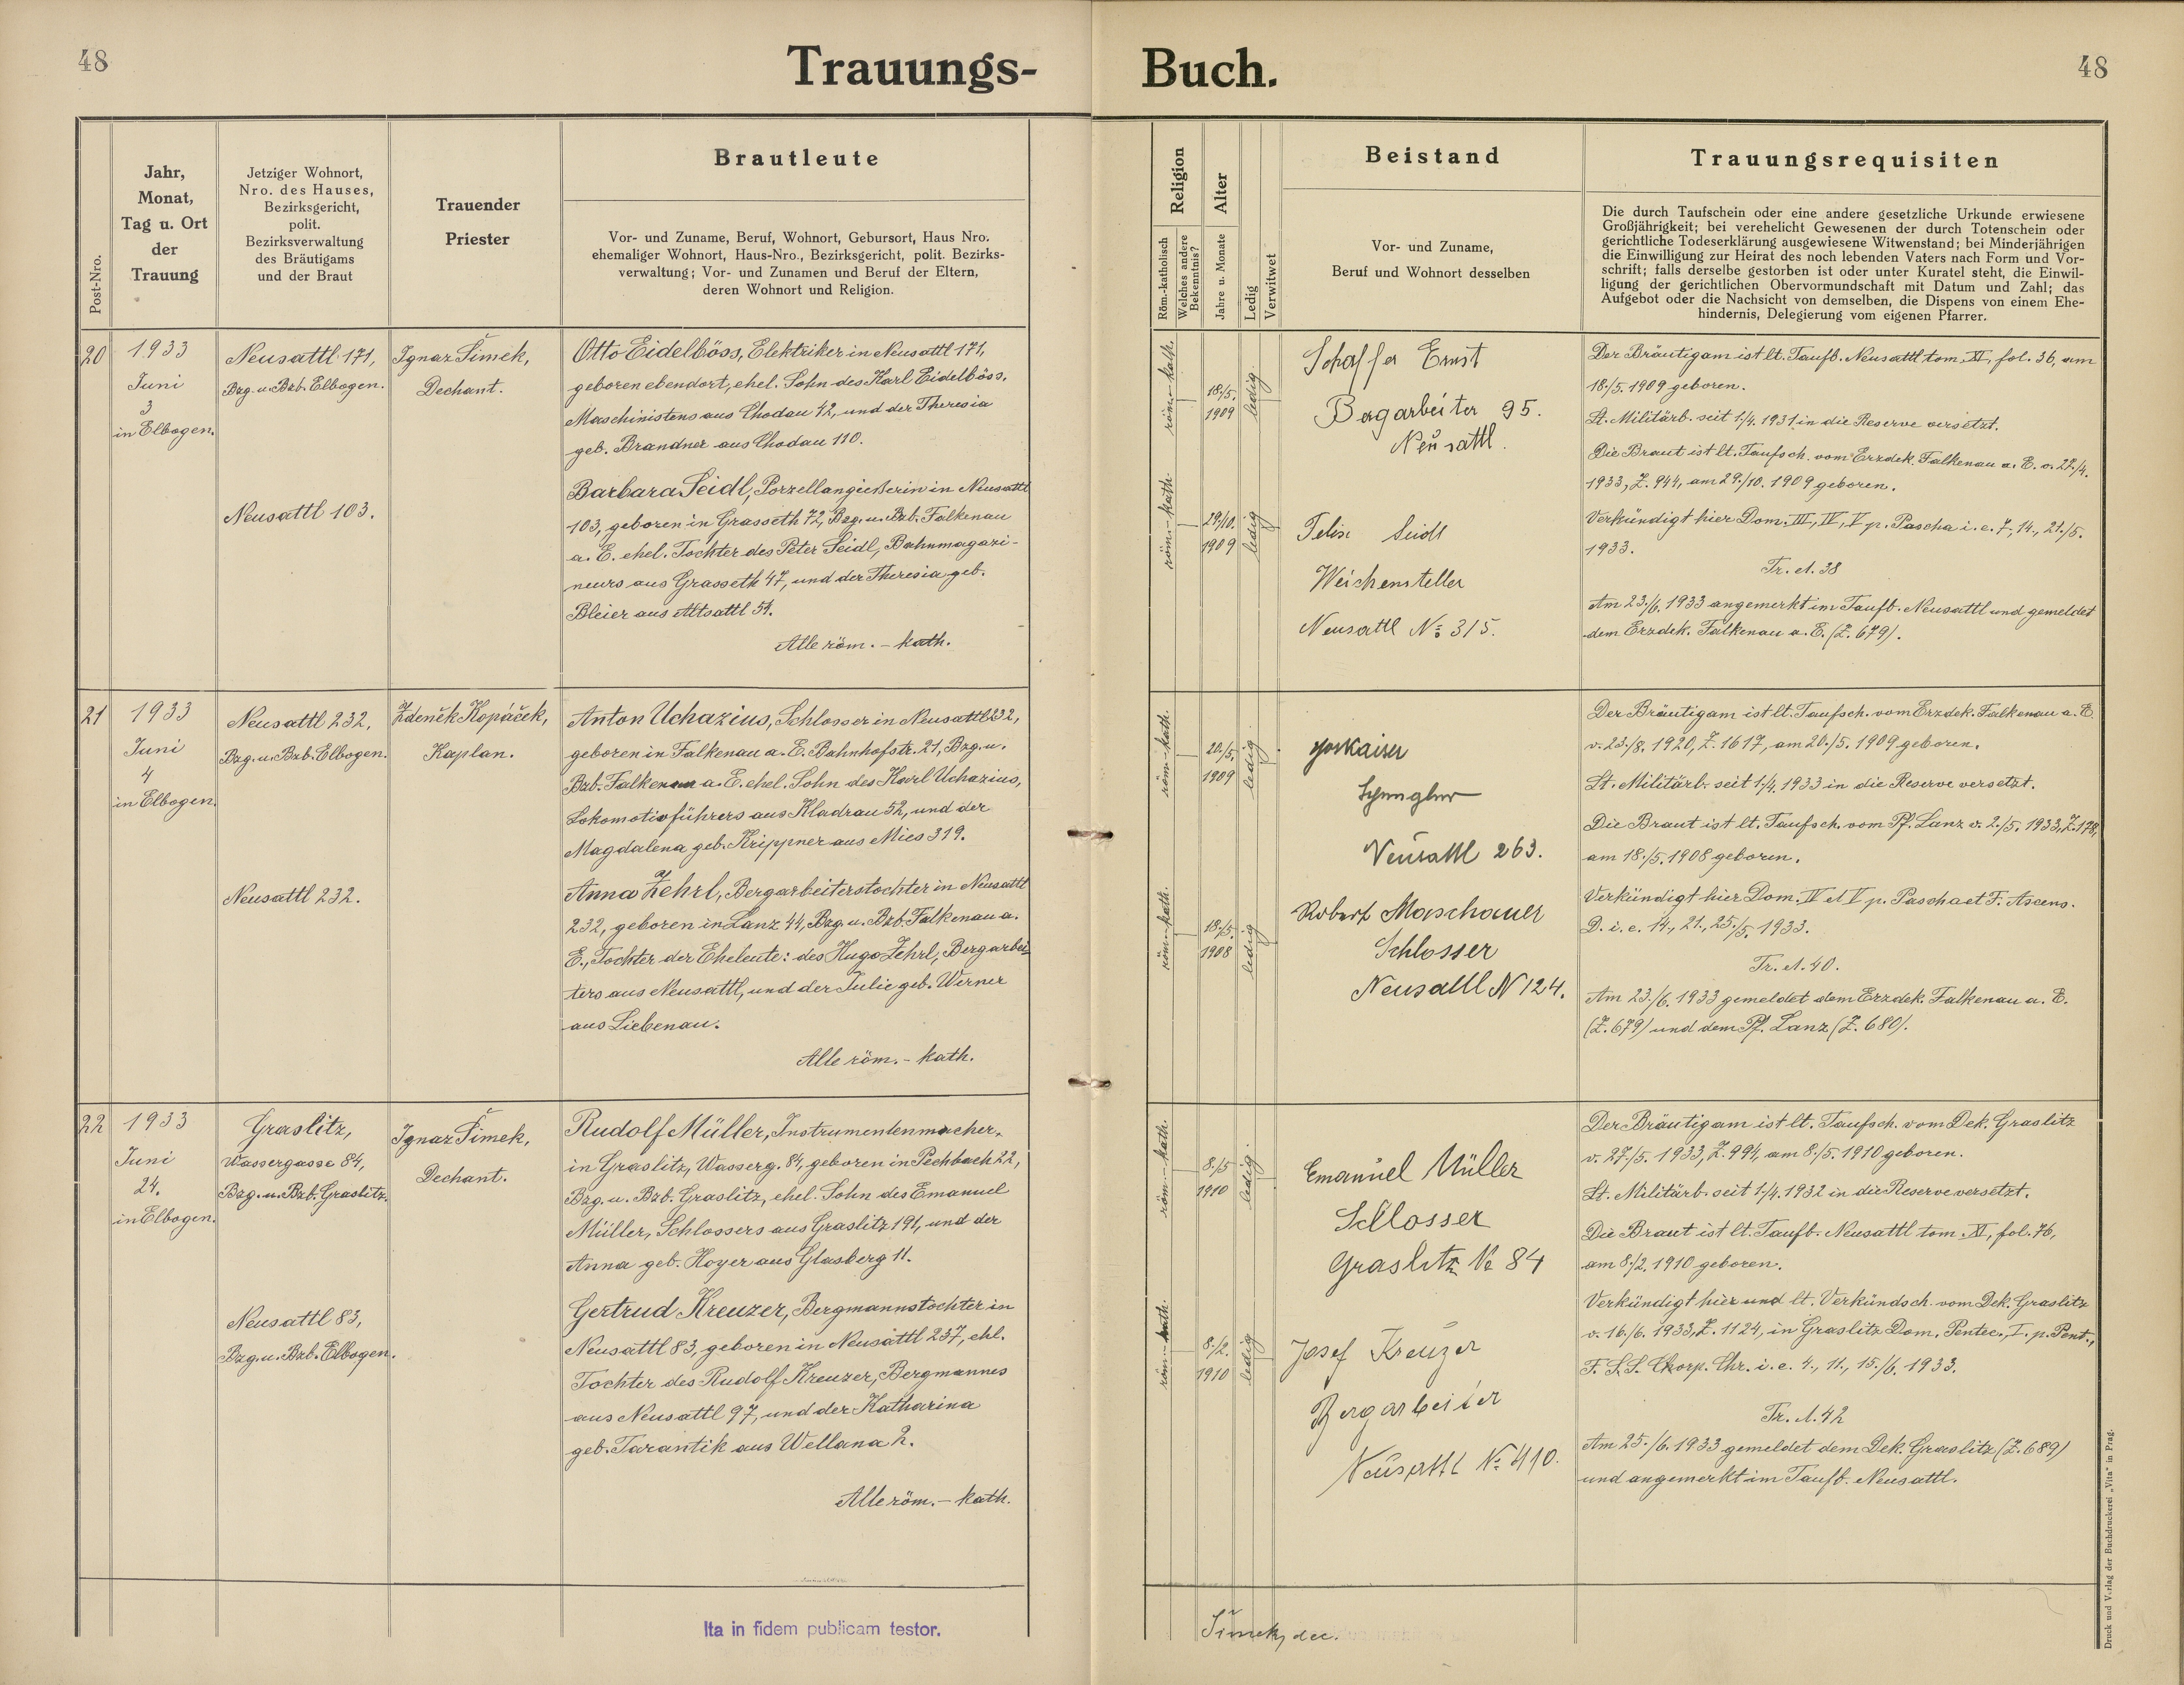 48
Trauungs-
Buch.
48
Post-Nro.
Jahr,
Monat,
Tag u. Ort
der
Trauung
Jetziger Wohnort,
Nro. des Hauses,
Bezirksgericht,
polit.
Bezirksverwaltung
des Bräutigams
und der Braut
Trauender
Priester
Brautleute
Vor- und Zuname, Beruf, Wohnort, Gebursort, Haus Nro.
ehemaliger Wohnort, Haus-Nro., Bezirksgericht, polit. Bezirks-
verwaltung; Vor- und Zunamen und Beruf der Eltern,
deren Wohnort und Religion.
Religion
Röm.-katholisch
Welches andere
Bekenntnis?
Alter
Jahre u. Monate
Ledig
Verwitwet
Beistand
Vor- und Zuname,
Beruf und Wohnort desselben
Trauungsrequisiten
Die durch Taufschein oder eine andere gesetzliche Urkunde erwiesene
Großjährigkeit; bei verehelicht Gewesenen der durch Totenschein oder
gerichtliche Todeserklärung ausgewiesene Witwenstand; bei Minderjährigen
die Einwilligung zur Heirat des noch lebenden Vaters nach Form und Vor-
schrift; falls derselbe gestorben ist oder unter Kuratel steht, die Einwil-
ligung der gerichtlichen Obervormundschaft mit Datum und Zahl; das
Aufgebot oder die Nachsicht von demselben, die Dispens von einem Ehe-
hindernis, Delegierung vom eigenen Pfarrer.
20
1933
Juni
3
in Elbogen.
Neusattl 171,
Bzg. u. Bzb. Elbogen.
Neusattl 103.
Ignaz Šimek,
Dechant.
Otto Eidelböss, Elektriker in Neusattl 171,
geboren ebendort, ehel. Sohn des Karl Eidelböss,
Maschinistens aus Chodau 42, und der Theresia
geb. Brandner aus Chodau 110.
Barbara Seidl, Porzellangießerin in Neusattl
103, geboren in Grasseth 72, Bzg. u. Bzb. Falkenau
a. E. ehel. Tochter des Peter Seidl, Bahnmagazi-
neurs aus Grasseth 47, und der Theresia geb.
Bleier aus Altsattl 51.
Alle röm.-kath.
röm.-kath.
18./5.
1909
ledig
röm.-kath.
29./10.
1909
ledig
Schaffer Ernst
Bergarbeiter 95.
Neusattl.
Seidl
Weichensteller
Neusattl No 315.
Der Bräutigam ist lt. Taufb. Neusattl tom. XI, fol. 36, am
18./5. 1909 geboren.
Lt. Militärb. seit 1./4. 1931 in die Reserve versetzt.
Die Braut ist lt. Taufsch. vom Erzdek. Falkenau a. E. v. 27./4.
1933, Z. 944, am 29./10. 1909 geboren.
Verkündigt hier Dom. III, IV, V p. Pascha i. e. 7., 14., 21./5.
1933.
Tr. A. 38
Am 23./6. 1933 angemerkt im Taufb. Neusattl und gemeldet
dem Erzdek. Falkenau a. E. (Z. 679).
21
1933
Juni
4
in Elbogen.
Neusattl 232,
Bzg. u. Bzb. Elbogen.
Neusattl 232.
Zdeněk Kopáček,
Kaplan.
Anton Uchazius, Schlosser in Neusattl 232,
geboren in Falkenau a. E. Bahnhofstr. 21, Bzg. u.
Bzb. Falkenau a. E. ehel. Sohn des Karl Uchazius,
Lokomotivführers aus Kladrau 52, und der
Magdalena geb. Krippner aus Mies 319.
Anna Zehrl, Bergarbeiterstochter in Neusattl
232, geboren in Lanz 44, Bzg. u. Bzb. Falkenau a.
E., Tochter der Eheleute: des Hugo Zehrl, Bergarbei-
ters aus Neusattl, und der Julie geb. Werner
aus Liebenau.
Alle röm.-kath.
röm.-kath.
20./5.
1909
ledig
röm.-kath.
18./5.
1908
ledig
Kaiser
Spengler
Neusattl 263.
Robert Maschauer
Schlosser
Neusattl N 124.
Der Bräutigam ist lt. Taufsch. vom Erzdek. Falkenau a. E.
v. 23./8. 1920, Z. 1617, am 20./5. 1909 geboren.
Lt. Militärb. seit 1./4. 1933 in die Reserve versetzt.
Die Braut ist lt. Taufsch. vom Pf. Lanz v. 2./5. 1933, Z. 178,
am 18./5. 1908 geboren.
Verkündigt hier Dom. IV et V p. Pascha et F. Ascens.
D. i. e. 14., 21., 25./5. 1933.
Tr. A. 40.
Am 23./6. 1933 gemeldet dem Erzdek. Falkenau a. E.
(Z. 679) und dem Pf. Lanz (Z. 680).
22
1933
Juni
24.
in Elbogen.
Graslitz,
Wassergasse 84,
Bzg. u. Bzb. Graslitz.
Neusattl 83,
Bzg. u. Bzb. Elbogen.
Ignaz Šimek,
Dechant.
Rudolf Müller, Instrumentenmacher,
in Graslitz, Wasserg. 84, geboren in Pechbach 22,
Bzg. u. Bzb. Graslitz, ehel. Sohn des Emanuel
Müller, Schlossers aus Graslitz 191, und der
Anna geb. Hoyer aus Glasberg 11.
Gertrud Kreuzer, Bergmannstochter in
Neusattl 83, geboren in Neusattl 237, ehl.
Tochter des Rudolf Kreuzer, Bergmannes
aus Neusattl 97, und der Katharina
geb. Tarantik aus Wellana 2.
Alle röm.-kath.
röm.-kath.
8./5
1910
ledig
röm.-kath.
8./2.
1910
ledig
Emanuel Müller
Schlosser
Graslitz No 84
Josef Kreuzer
Bergarbeiter
Neusattl No 410.
Der Bräutigam ist lt. Taufsch. vom Dek. Graslitz
v. 27./5. 1933, Z. 994, am 8./5. 1910 geboren.
Lt. Militärb. seit 1./4. 1932 in die Reserve versetzt.
Die Braut ist lt. Taufb. Neusattl tom. XI, fol. 76,
am 8./2. 1910 geboren.
Verkündigt hier und lt. Verkündsch. vom Dek. Graslitz
v. 16./6. 1933, Z. 1124, in Graslitz Dom. Pentec., I. p. Pent.,
F. S.S. Corp. Chr. i. e. 4., 11., 15./6. 1933.
Tr. A. 42
Am 25./6. 1933 gemeldet dem Dek. Graslitz (Z. 689)
und angemerkt im Taufb. Neusattl.
Ita in fidem publicam testor.
Šimek, dec.
Druck und Verlag der Buchdruckerei „Vita" in Prag.